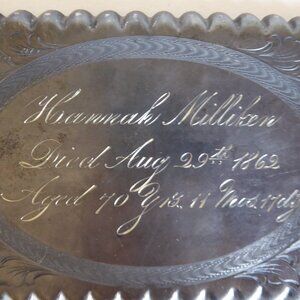 Hannah Milliken
Died Aug 29th 1862
Aged 70 Yrs. 11 Mos 17dy